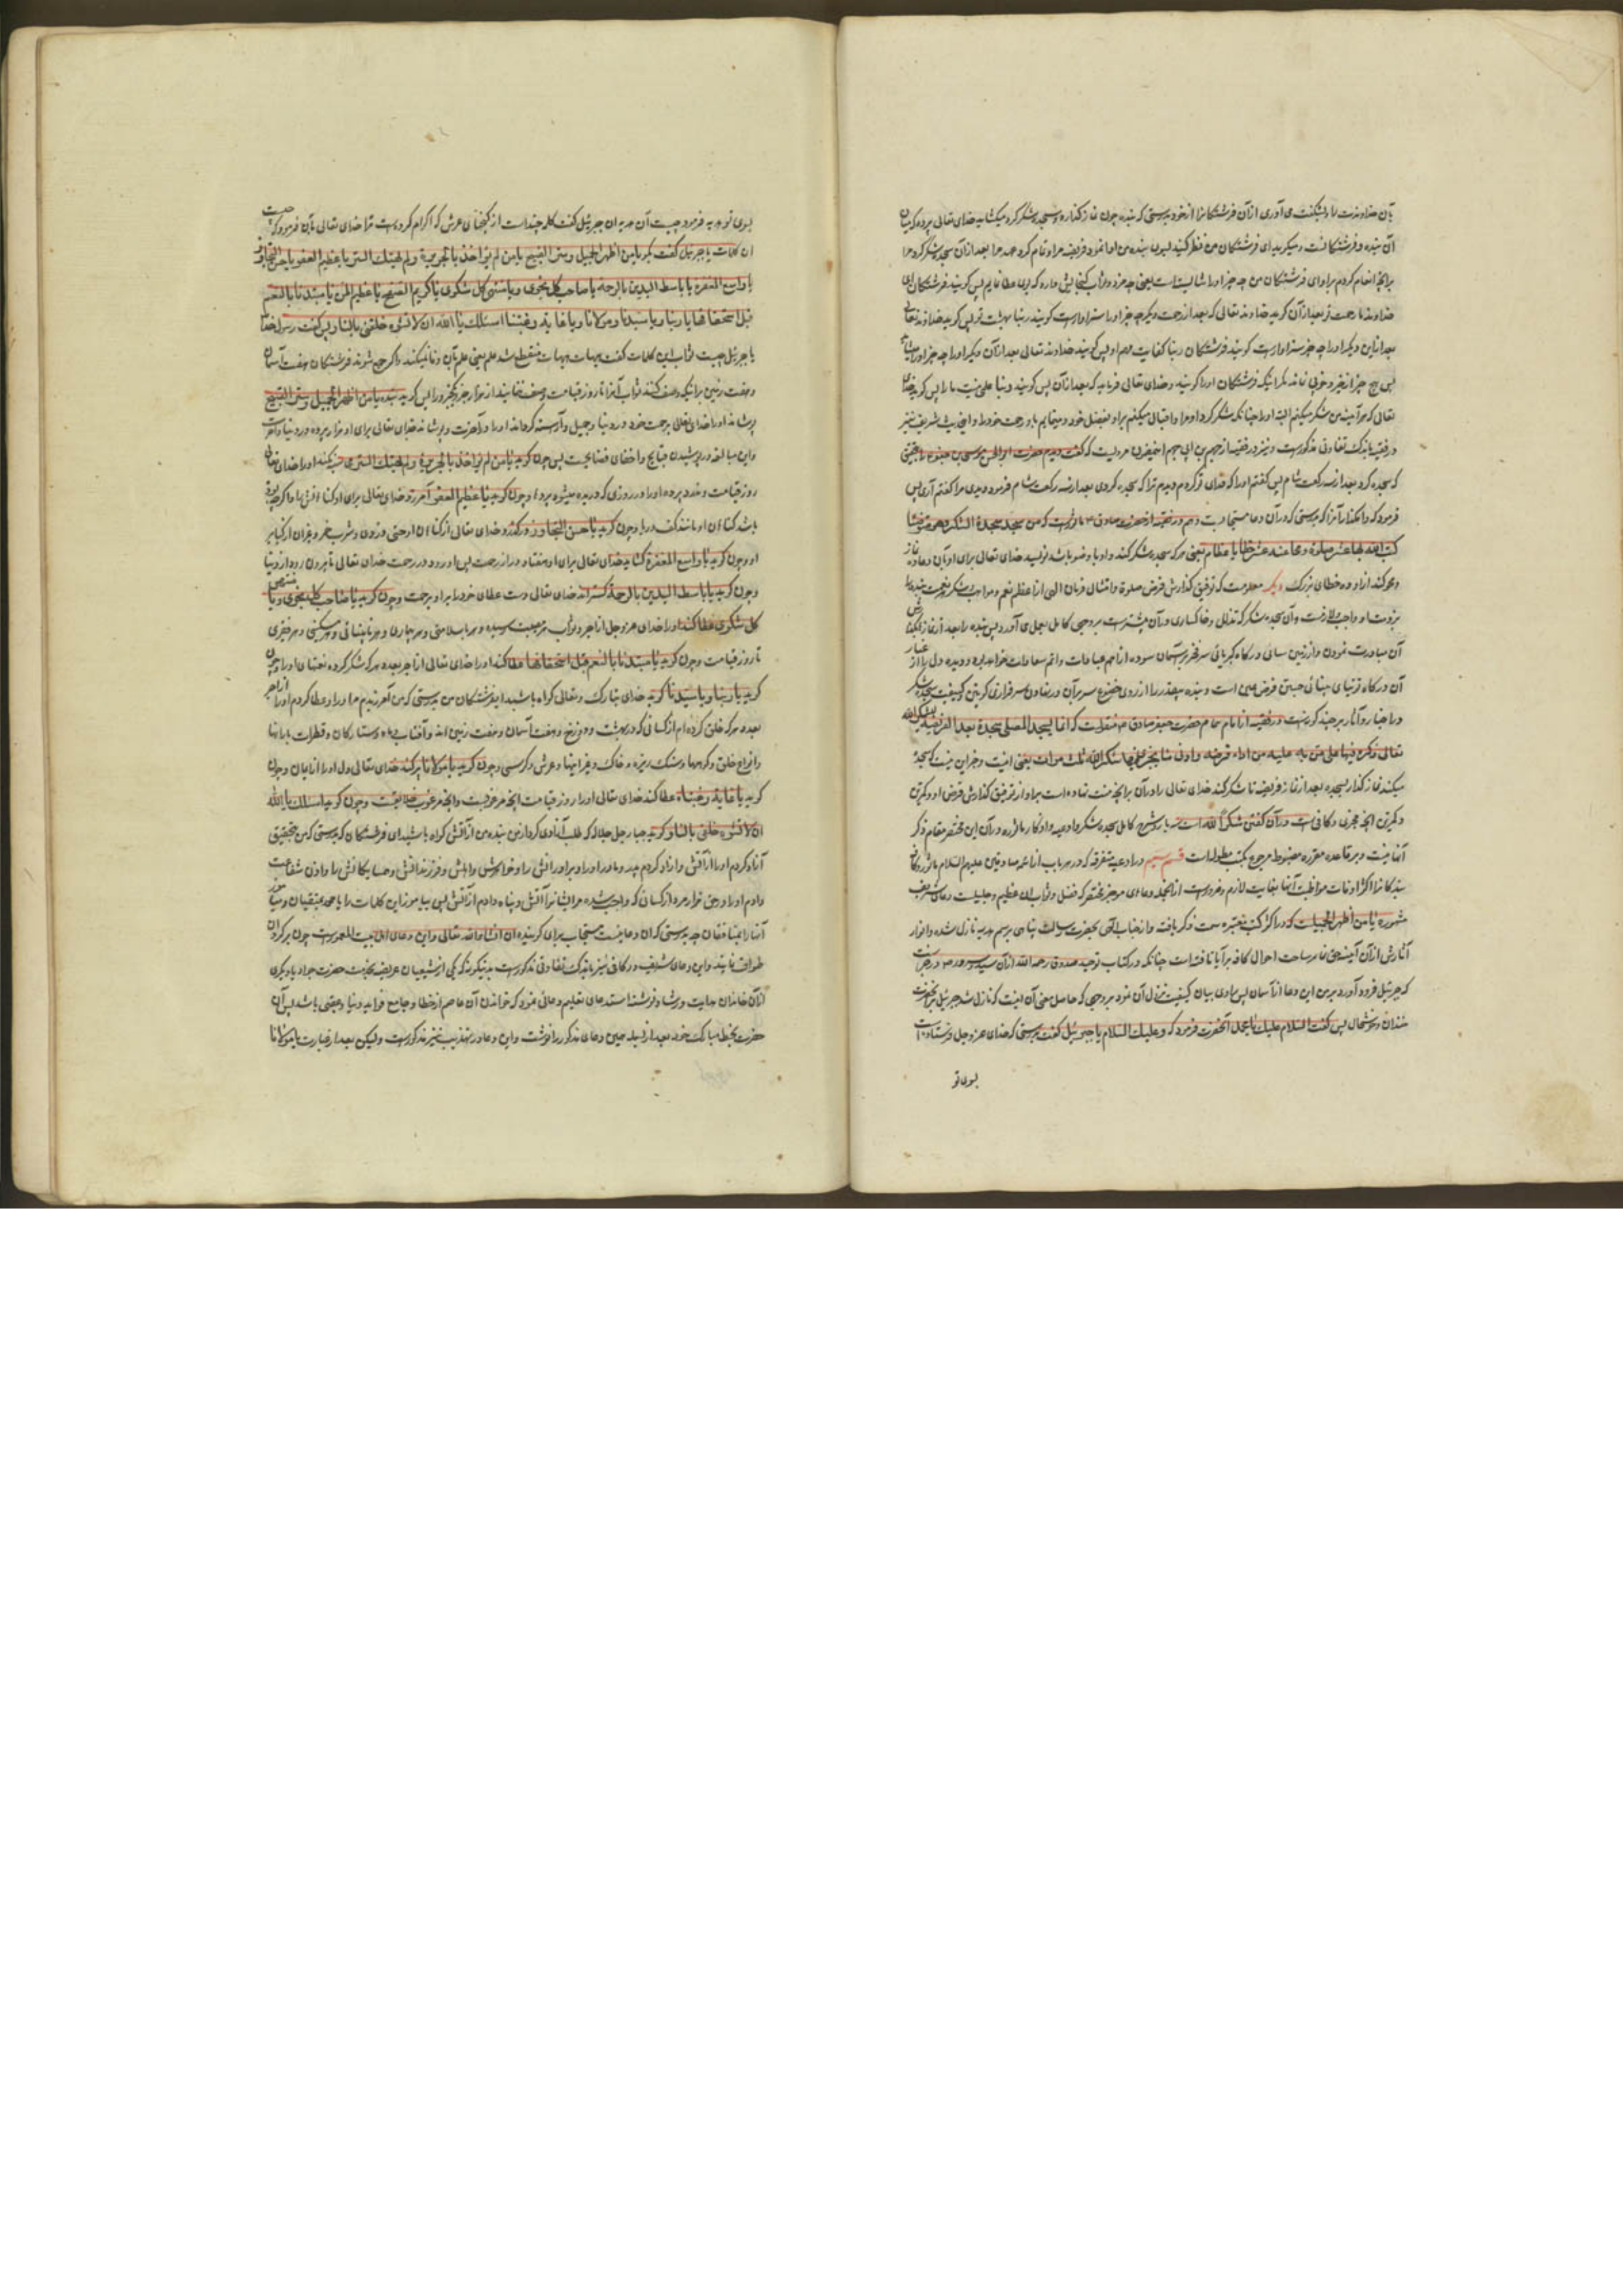 بآن خداوندت را و بشکفت می آوری ازآن فرشتگانرا از خود بدرستی که بنده چون نماز گذارد و سجده شکر کرد میکشاید خدای تعالی پرده که میان
آن بنده و فرشتگانست و میگوید ای فرشتگان من نظر کنید بسوی بنده من ادا نمود فریضه مرا و تمام کرد عهد مرا بعد ازآن سجده شکر کرد مرا
برآنچه انعام کردم براو ای فرشتگان من چه چیز اورا
خداوندا رحمت تو بعد ازآن گوید خداوند تعالی که بعد از رحمت دیگر چه چیز اورا سزاوارست گویند ربنا بهشت تو پس گوید خداوند تعالی
بعد ازاین دیگر اورا چه چیز سزاوارست گویند فرشتگان ربنا کفایت مهم او پس گوید خداوند تعالی بعد ازآن دیگر اورا چه چیز
پس هیچ چیز از خیر و خوبی نماند مگر اینکه فرشتگان اورا گویند و خدای تعالی فرماید که بعد ازآن پس گویند ربنا علمی نیست ما را پس گوید خدای
تعالی که هر آینه من شکر میکنم البته اورا چنانکه شکر کرد او مرا و اقبال میکنم براو بفضل خود و مینمایم باو رحمت خودرا و این حدیث شریف نیز
در فقیه باندک تفاوتی مذکورست و نیز در فقیه از جهم بن ابی جهم مرویست که گفت دیدم حضرت ابو الحسن موسی بن جعفر را بتحقیق
که سجده کرد بعد از سه رکعت شام پس گفتم اورا که فدای تو گردم دیدم ترا که سجده کردی بعد از سه رکعت شام فرمود دیدی مرا گفتم آری پس
فرمود که وامگذار آنرا که بدرستی که درآن دعا مستجابست و هم در فقیه از حضرت صادق ع ماثورست که من سجد سجدة الشکر و هو متوضئا
کتب الله بها عشر صلوة و محا عنه عشر خطایا عظام یعنی هر که سجده شکر کند و او با وضو باشد نویسد خدای تعالی برای او بآن ده نماز
و محو کند ازاو ده خطای بزرگ دیگر معلومست که توفیق گذارش فرض صلوة و امتثال فرمان الهی از اعظم نعم و مواهب
آن مبادرت نمودن و از زمین سائی درگاه کبریائی سر فخر بر آسمان سودن از اهم عبادات و اتم سعادات خواهد بود و دیده دل را از غبار
آن درگاه توتیای بینائی جستن فرض عین است و بنده بیقدر را از روی خضوع سر برآن در نهادن سرفرازی کونین و کیفیت سجده شکر
در اخبار و آثار هر چند مذکورست و در فقیه از امام همام حضرت جعفر صادق ع منقولست که انما یسجد المصلی سجدة بعد الفریضة لیشکر الله
تعالی ذکره فیها علی ما من به علیه من اداء فرضه و ادنی ما یجزی فیها شکرا لله ثلث مرات یعنی اینست و جز این نیست که سجده
میکند نماز گذار سجده بعد از نماز فریضه تا شکر کند خدای تعالی را درآن برآنچه منت نهاده است براو از توفیق گذارش فرض او و کمترین
و کمترین آنچه مجزی و کافی است درآن گفتن شکرا لله است سه بار و شرح کامل سجده شکر و ادعیه و اذکار ماثوره درآن این مختصر مقام ذکر
آنها نیست و بر قاعده مقرره مضبوط مرجوع بکتب مطولهاست قسم سیم در ادعیه متفرقه که در هر باب از ائمه صادقین علیهم السلام ماثور و کافه
بندگانرا اکثر اوقات مواظبت آنها بغایت لازم و ضرورست ازانجمله دعای موجز مختصر که فضل و ثواب آن عظیم و جلیلست دعای شریف
مشهور یا من اظهر الجمیل است که در اکثر کتب معتبره سمت ذکر یافته و از جناب الهی بحضرت رسالت پناهی برسم هدیه نازل شده و انوار
آثارش ازآن آینه حق نما بر ساحت احوال کافه برآیا تافته است چنانکه در کتاب توحید صدوق رحمه الله ازآن سید و سرور
که جبرئیل فرود آورد برمن این دعا از آسمان پس راوی بیان کیفیت نزول آن نمود بروجهی که حاصل معنی آن اینست که نازل شد جبرئیل برآنحضرت
خندان و خوشحال پس گفت السلام علیک یا محمد آنحضرت فرمود که و علیک السلام یا جبرئیل گفت بدرستی که خدای عز و جل فرستاده است
بسوی تو
بسوی تو هدیه فرمود چیست آن هدیه ای جبرئیل گفت کلمه چند است از گنجهای عرش که اکرام کرده است ترا خدای تعالی بآن فرمود که چیست
آن کلمات یا جبرئیل گفت بگو یا من اظهر الجمیل و ستر القبیح یا من لم یؤاخذ بالجریرة و لم یهتک الستر یا عظیم العفو یا حسن التجاوز
یا واسع المغفرة یا باسط الیدین بالرحمة یا صاحب کل نجوی و یا منتهی کل شکوی یا کریم الصفح یا عظیم المن یا مبتدئا بالنعم
قبل استحقاقها یا ربنا و یا سیدنا و مولانا و یا غایة رغبتنا اسئلک یا الله ان لا تشوه خلقی بالنار پس گفت رسول خدا
یا جبرئیل چیست ثواب این کلمات گفت هیهات هیهات منقطع شد علم یعنی علم بآن وفا نمیکند و اگر جمع شوند فرشتگان هفت آسمان
و هفت زمین برآنکه وصف کنند ثواب آنرا تا روز قیامت وصف ننمایند از هزار جزو یکجزو را پس گوید بنده یا من اظهر الجمیل و ستر القبیح
پوشاند اورا خدای تعالی برحمت خود در دنیا و جمیل و آراسته گرداند اورا در آخرت و پوشاند خدای تعالی برای او هزار پرده در دنیا و آخرت
و این مبالغه در پوشیدن قبایح و اخفای فضایحست پس چون گوید یا من لم یؤاخذ بالجریرة و لم یهتک الستر حساب نمیکند اورا خدای تعالی
روز قیامت و ندرد پرده اورا در روزی که دریده میشود پردها و چون گوید یا عظیم العفو آمرزد خدای تعالی برای او گناهانش را و اگرچه بوده
باشد گناهان او مانند کف دریا و چون گوید یا حسن التجاوز درگذرد خدای تعالی از گناهان او حتی دزدی و شرب خمر و غیر آن از کبایر
او و چون گوید یا واسع المغفرة گشاید خدای تعالی برای او هفتاد در از رحمت پس او رود در رحمت خدای تعالی تا بیرون رود از دنیا
و چون گوید یا باسط الیدین بالرحمة گستراند خدای تعالی دست عطای خودرا براو برحمت و چون گوید یا صاحب کل نجوی و یا منتهی
کل شکوی عطا کند اورا خدای عز و جل از اجر و ثواب هر مصیبت رسیده و هر باسلامتی و هر بیماری و هر نابینائی و هر مسکینی و هر فقیری
تا روز قیامت و چون گوید یا مبتدئا بالنعم قبل استحقاقها عطا کند اورا خدای تعالی از اجر بعدد هر که شکر کرده نعمتهای اورا و چون
گوید یا ربنا و یا سیدنا گوید خدای تبارک و تعالی گواه باشید ای فرشتگان من بدرستی که من آمرزیدم مر اورا و عطا کردم اورا از اجر
بعدد هر که خلق کرده ام از کسانی که در بهشت و دوزخ و هفت آسمان و هفت زمین اند و آفتاب و ماه و ستارگان و قطرات بارانها
و انواع خلق و کوهها و سنگ ریزه و خاک و غیر اینها و عرش و کرسی و چون گوید یا مولانا پر کند خدای تعالی دل اورا از ایمان و چون
گوید یا غایة رغبتنا عطا کند خدای تعالی اورا روز قیامت آنچه مرغوبست و آنچه مرغوب خلایقست و چون گوید اسئلک یا الله
ان لا تشوه خلقی بالنار گوید جبار جل جلاله که طلب آزادی کرد ازمن بنده من از آتش گواه باشید ای فرشتگان که بدرستی که من بتحقیق
آزاد کردم اورا از آتش و آزاد کردم پدر و مادر اورا و برادرانش را و خواهرش و اهلش و فرزندانش و همسایگانش را و اذن شفاعت
دادم اورا در حق هزار مرد از کسانی که واجب شده مر ایشانرا آتش و پناه دادم از آتش پس بیاموز این کلمات را یا محمد بمتقیان و میاموز
آنرا بمنافقان چه بدرستی که آن دعائیست مستجاب برای گوینده آن انشاء الله تعالی و این دعای اهل بیت المعمورست چون برگرد آن
طواف نمایند و این دعای شریف در کافی نیز باندک تفاوتی مذکورست بدینگونه که یکی از شیعیان عریضه بخدمت حضرت جواد یا دیگری
ازآن خاندان هدایت و رشاد فرستاد استدعای تعلیم دعائی نمود که خواندن آن عاصم از خطا و جامع فواید دنیا و عقبی باشد پس آن
حضرت بخط مبارک خود بعد از بسمله همین دعای مذکور را نوشت و این دعا در تهذیب نیز مذکورست ولیکن بعد از عبارت یا مولانا